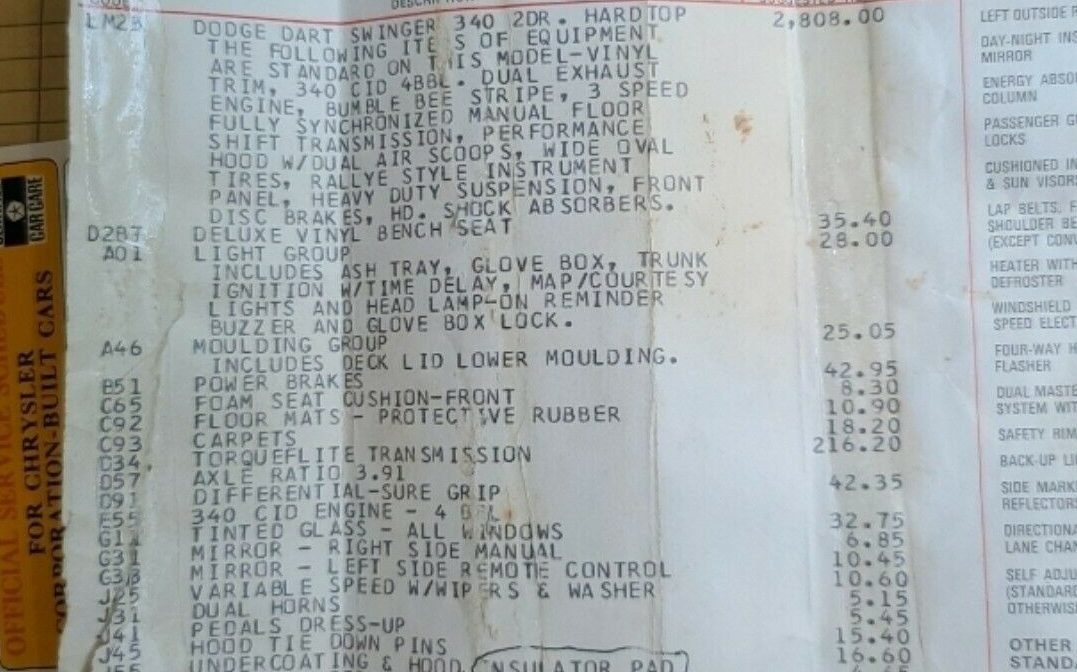 LM23 DODGE DART SWINGER 340 2DR. HARDTOP 2,808.00
THE FOLLOWING ITEMS OF EQUIPMENT
ARE STANDARD ON THIS MODEL-VINYL
TRIM, 340 CID 4BBL. DUAL EXHAUST
ENGINE, BUMBLE BEE STRIPE, 3 SPEED
FULLY SYNCHRONIZED MANUAL FLOOR
SHIFT TRANSMISSION, PERFORMANCE
HOOD W/DUAL AIR SCOOPS, WIDE OVAL
TIRES, RALLYE STYLE INSTRUMENT
PANEL, HEAVY DUTY SUSPENSION, FRONT
DISC BRAKES, HD. SHOCK ABSORBERS.
D2B7 DELUXE VINYL BENCH SEAT 35.40
A01 LIGHT GROUP 28.00
INCLUDES ASH TRAY, GLOVE BOX, TRUNK
IGNITION W/TIME DELAY, MAP/COURTESY
LIGHTS AND HEAD LAMP-ON REMINDER
BUZZER AND GLOVE BOX LOCK.
A46 MOULDING GROUP 25.05
INCLUDES DECK LID LOWER MOULDING.
B51 POWER BRAKES 42.95
C65 FOAM SEAT CUSHION-FRONT 8.30
C92 FLOOR MATS - PROTECTIVE RUBBER 10.90
C93 CARPETS 18.20
D34 TORQUEFLITE TRANSMISSION 216.20
D57 AXLE RATIO 3.91
D91 DIFFERENTIAL-SURE GRIP 42.35
E55 340 CID ENGINE - 4 BBL
G11 TINTED GLASS - ALL WINDOWS 32.75
G31 MIRROR - RIGHT SIDE MANUAL 6.85
G33 MIRROR - LEFT SIDE REMOTE CONTROL 10.45
J25 VARIABLE SPEED W/WIPERS & WASHER 10.60
J31 DUAL HORNS 5.15
J41 PEDALS DRESS-UP 5.45
J45 HOOD TIE DOWN PINS 15.40
UNDERCOATING & HOOD INSULATOR PAD 16.60
LEFT OUTSIDE
DAY-NIGHT
MIRROR
ENERGY
COLUMN
PASSENGER
LOCKS
CUSHIONED
& SUN VISORS
LAP BELTS,
SHOULDER
(EXCEPT
HEATER WITH
DEFROSTER
WINDSHIELD
SPEED
FOUR-WAY
FLASHER
DUAL
SYSTEM
SAFETY RIM
BACK-UP
SIDE
REFLECTORS
DIRECTIONAL
LANE
SELF
(STANDARD
OTHERWISE
OTHER
STAND
CAR CARE
OFFICIAL SERVICE
FOR CHRYSLER
CORPORATION-BUILT CARS